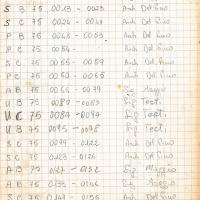 S B 75 0023 - 0023 Arch Del Fino
S C 75 0024 - 0047 Arch Del Fino
P B 75 0048 - 0053 Arch Del Fino
P C 75 0054 - Arch Del Fino
S B 75 0055 - 0057 Arch Del Fino
P C 75 0060 - 0065 Arch Del Fino
A B 75 0066 - 0079 Sig. Maggio
U B 75 0080 - 0083 Sig Testi
U C 75 0084 - 0094 Sig Testi
U B 75 0095 - 0098 Sig Testi
S C 75 0099 - 0122 Arch Del Fino
S C 75 0123 - 0126 Arch Del Fino
A B 75 0127 - 0132 Sig Maggio
A B 75 0133 - 0146 Sig. Maggio
S C 75 0147 - 0156 Arch Del Fino